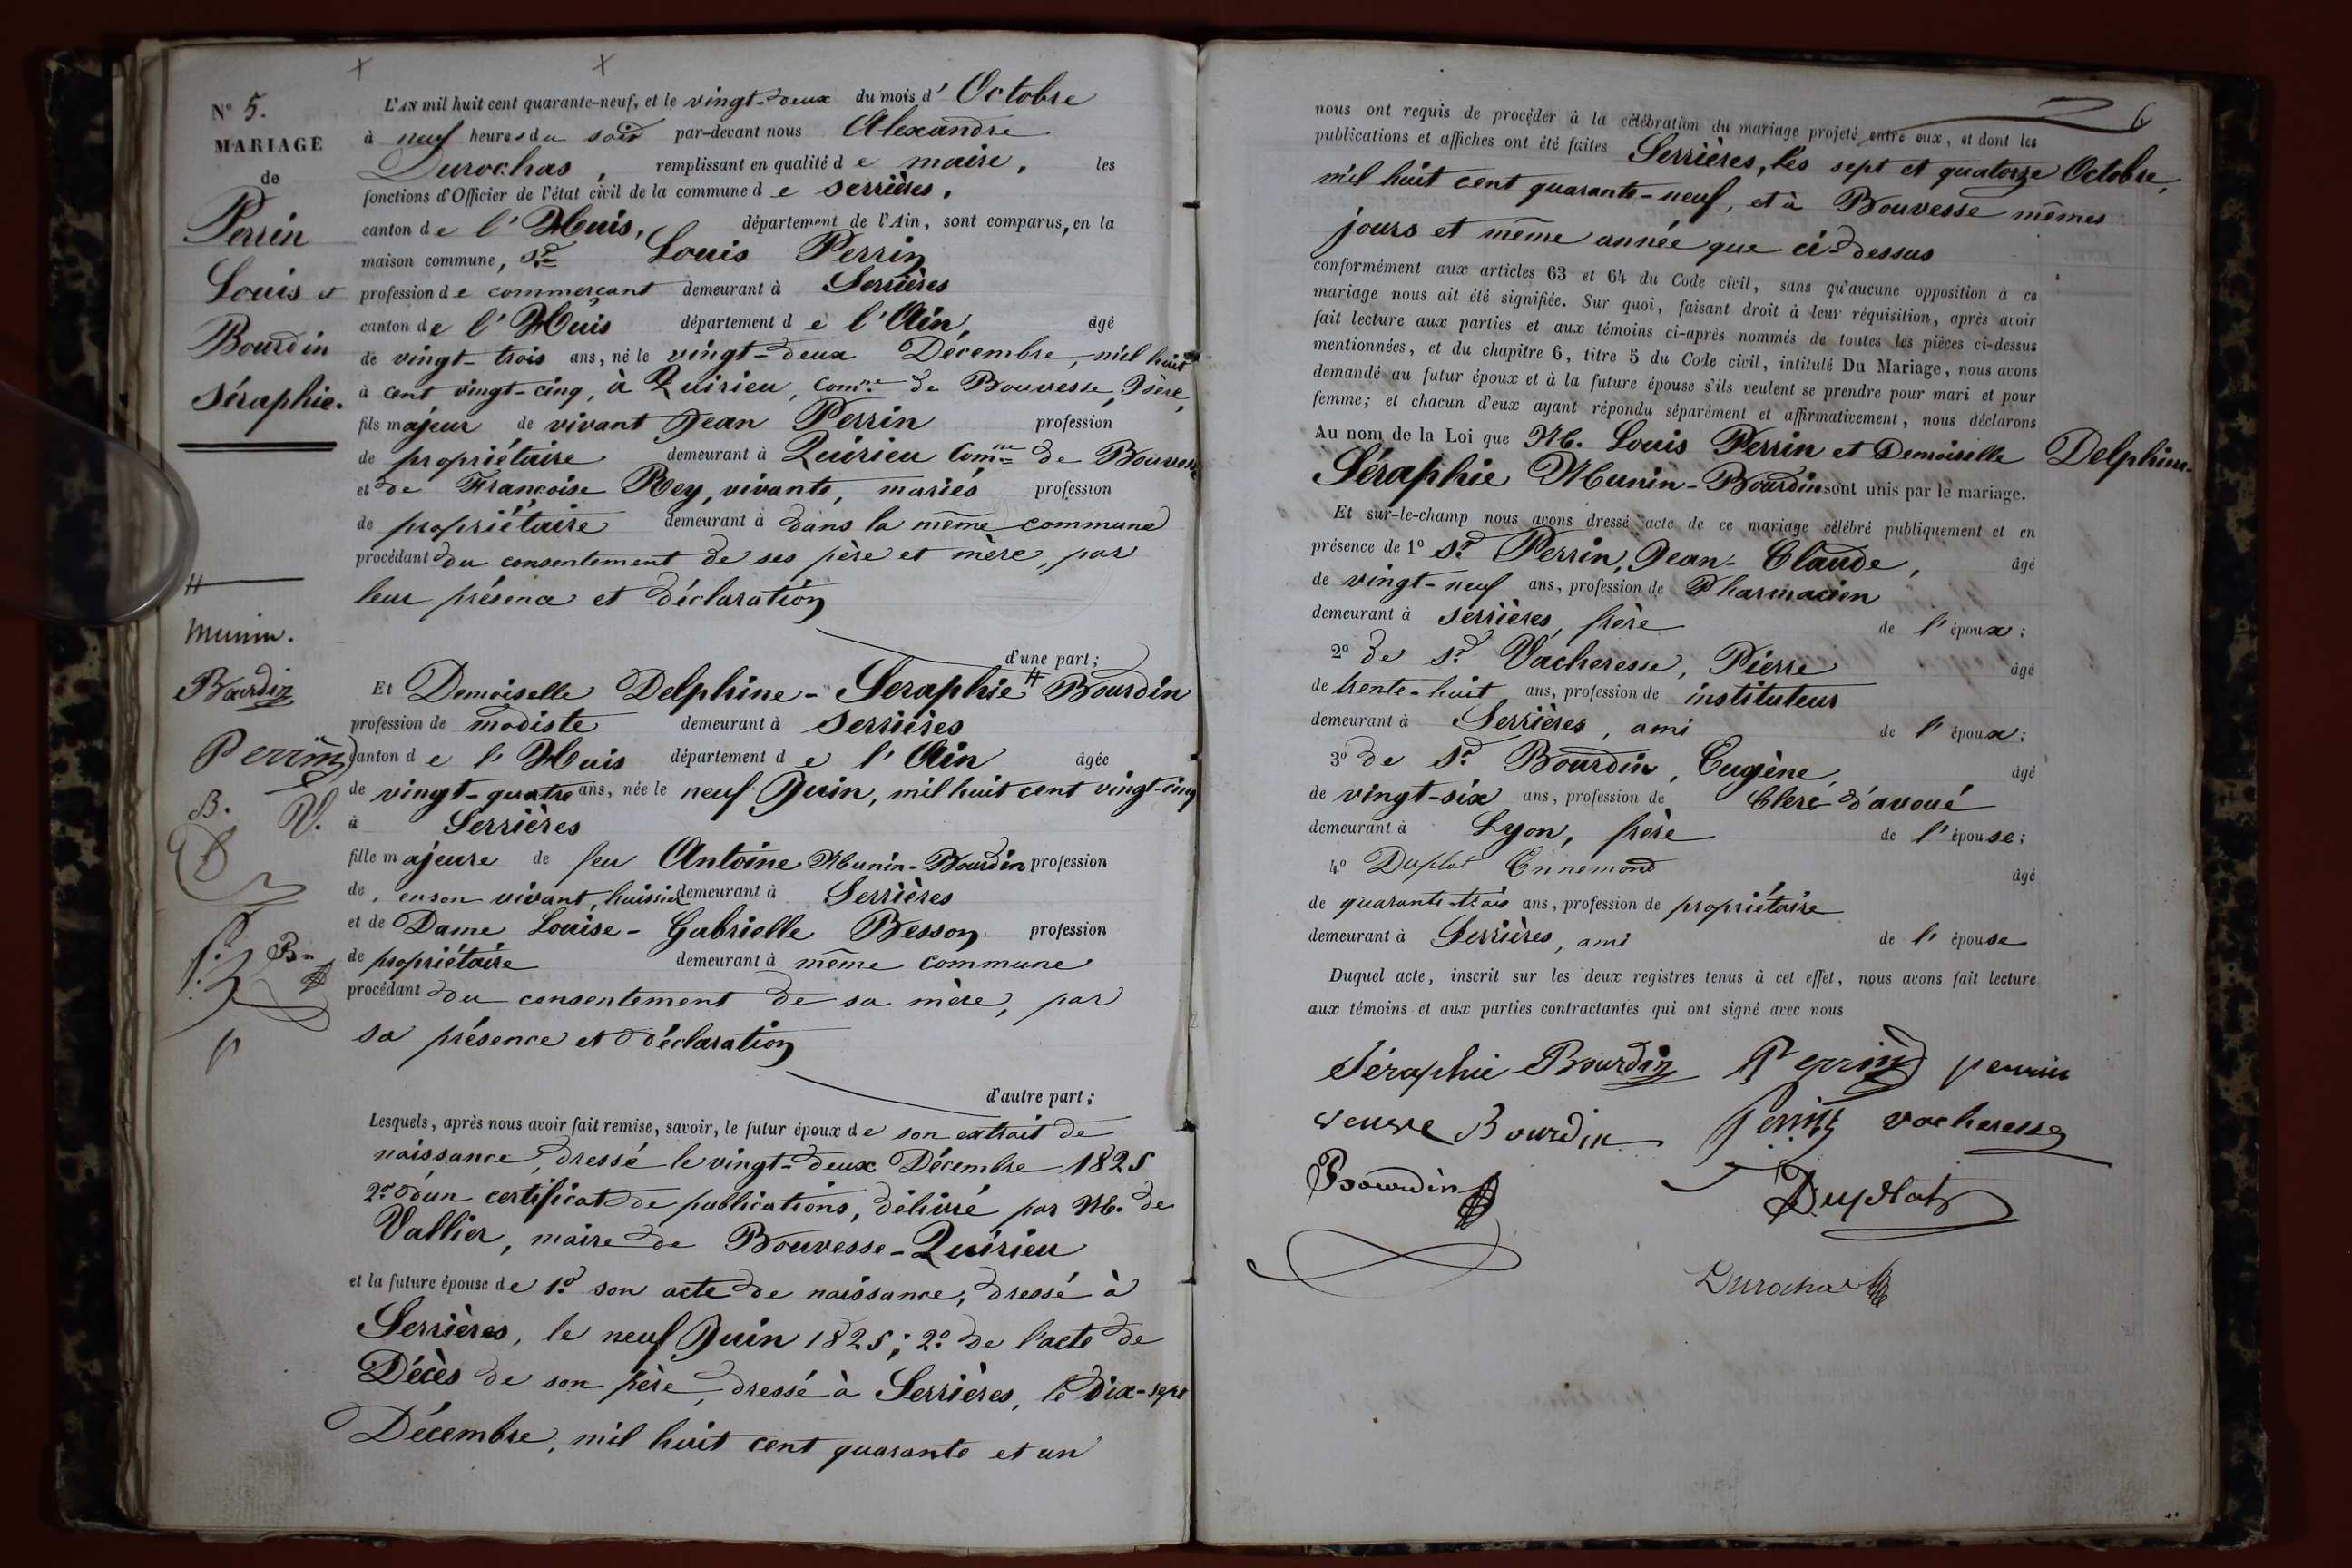 N° 5.
MARIAGE
de
Perrin
Louis et
Bourdin
Séraphie.
#
Munin.
Bourdin
Perrin
B. V.
Bn
L'AN mil huit cent quarante-neuf, et le vingt-deux du mois d' Octobre
à neuf heures du soir par-devant nous Alexandre
Durochas, remplissant en qualité de maire, les
fonctions d'Officier de l'état civil de la commune de serrières,
canton de l'Huis, département de l'Ain, sont comparus, en la
maison commune, Sr Louis Perrin
profession de commerçant demeurant à Serrières
canton de l'Huis département de l'Ain, âgé
de vingt-trois ans, né le vingt-deux Décembre, mil huit
à cent vingt-cinq, à Quirieu, Comne de Bouvesse, Isère,
fils majeur de vivant Jean Perrin profession
de propriétaire demeurant à Quirieu Comne de Bouvesse
et de Françoise Rey, vivante, mariés profession
de propriétaire demeurant à dans la même commune
procédant du consentement de ses père et mère, par
leur présence et déclaration
d'une part;
Et Demoiselle Delphine-Seraphie # Bourdin
profession de modiste demeurant à serrières
canton de l'Huis département de l'Ain âgée
de vingt-quatre ans, née le neuf Juin, mil huit cent vingt-cinq
à Serrières
fille majeure de feu Antoine Munin-Bourdin profession
de, en son vivant, huissier demeurant à Serrières
et de Dame Louise-Gabrielle Besson profession
de propriétaire demeurant à même commune
procédant du consentement de sa mère, par
sa présence et déclaration
d'autre part;
Lesquels, après nous avoir fait remise, savoir, le futur époux de son extrait de
naissance, dressé le vingt-deux Décembre 1825
2° d'un certificat de publications, délivré par M. de
Vallier, maire de Bouvesse-Quirieu
et la future épouse de 1° son acte de naissance, dressé à
Serrières, le neuf Juin 1825; 2° de l'acte de
Décès de son père, dressé à Serrières, le dix-sept
Décembre, mil huit cent quarante et un
6
nous ont requis de procéder à la célébration du mariage projeté entre eux, et dont les
publications et affiches ont été faites Serrières, les sept et quatorze Octobre,
mil huit cent quarante-neuf, et à Bouvesse mêmes
jours et même année que ci-dessus
conformément aux articles 63 et 64 du Code civil, sans qu'aucune opposition à ce
mariage nous ait été signifiée. Sur quoi, faisant droit à leur réquisition, après avoir
fait lecture aux parties et aux témoins ci-après nommés de toutes les pièces ci-dessus
mentionnées, et du chapitre 6, titre 5 du Code civil, intitulé Du Mariage, nous avons
demandé au futur époux et à la future épouse s'ils veulent se prendre pour mari et pour
femme; et chacun d'eux ayant répondu séparément et affirmativement, nous déclarons
Au nom de la Loi que M. Louis Perrin et Demoiselle Delphine-
Séraphie Munin-Bourdin sont unis par le mariage.
Et sur-le-champ nous avons dressé acte de ce mariage célébré publiquement et en
présence de 1° Sr Perrin, Jean-Claude, âgé
de vingt-neuf ans, profession de Pharmacien
demeurant à serrières, frère de l'époux;
2° de Sr Vacheresse, Pierre âgé
de trente-huit ans, profession de instituteur
demeurant à Serrières, ami de l'époux;
3° de Sr Bourdin, Eugène, âgé
de vingt-six ans, profession de Clerc d'avoué
demeurant à Lyon, frère de l'épouse;
4° Duplat Ennemond âgé
de quarante-trois ans, profession de propriétaire
demeurant à Serrières, ami de l'épouse
Duquel acte, inscrit sur les deux registres tenus à cet effet, nous avons fait lecture
aux témoins et aux parties contractantes qui ont signé avec nous
Séraphie Bourdin Perrin perrin
veuve Bourdin Perrin vacheresse
Bourdin Duplat
Durochas